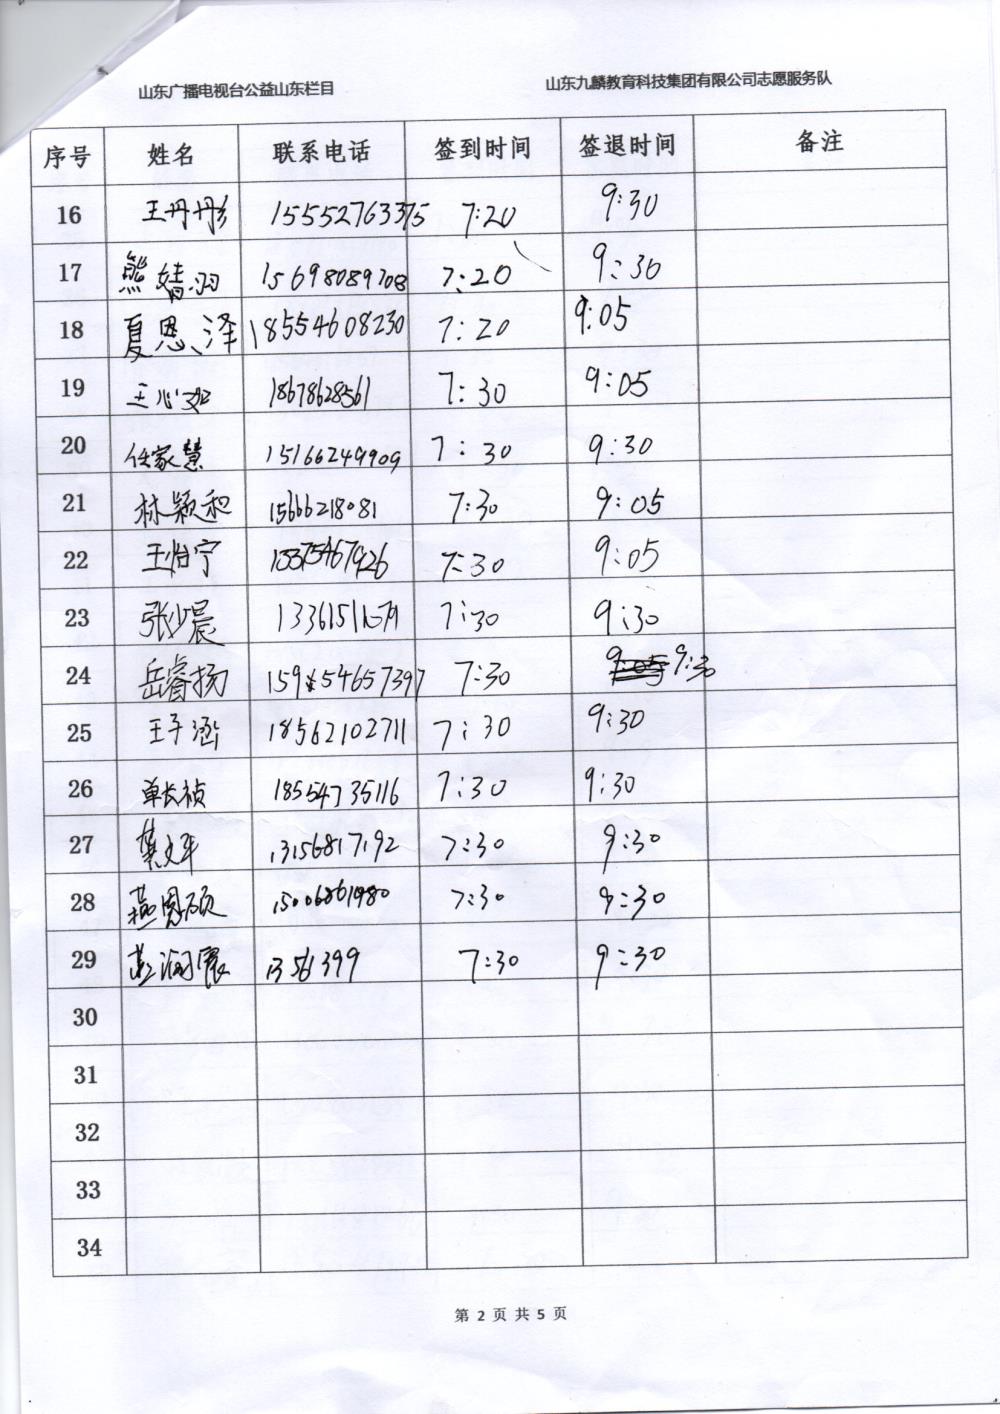 山东广播电视台公益山东栏目 山东九麟教育科技集团有限公司志愿服务队
序号 姓名 联系电话 签到时间 签退时间 备注
16 王丹彤 15552763375 7:20 9:30
17 熊婧羽 15698089708 7:20 9:30
18 夏恩泽 18554608230 7:20 9:05
19 王心如 18678628561 7:30 9:05
20 任家慧 15166249909 7:30 9:30
21 林颖和 15666218081 7:30 9:05
22 王怡宁 15375467926 7:30 9:05
23 张少晨 7:30 9:30
24 岳睿扬 15954657397 7:30 9:30
25 王子涵 18562102711 7:30 9:30
26 单长祯 18554735116 7:30 9:30
27 13156817192 7:30 9:30
28 燕恩硕 15006861980 7:30 9:30
29 13561399 7:30 9:30
30
31
32
33
34
第 2 页 共 5 页